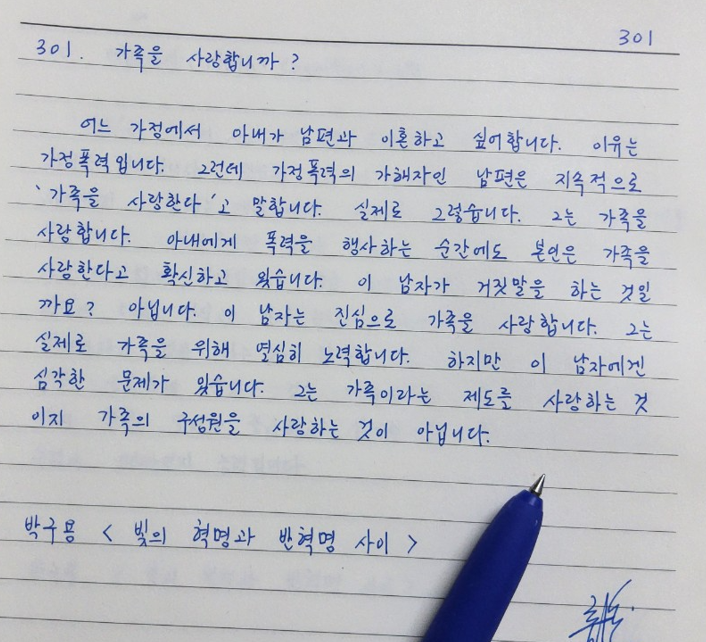 301
301. 가족을 사랑합니까?
어느 가정에서 아내가 남편과 이혼하고 싶어합니다. 이유는
가정폭력입니다. 그런데 가정폭력의 가해자인 남편은 지속적으로
'가족을 사랑한다'고 말합니다. 실제로 그렇습니다. 그는 가족을
사랑합니다. 아내에게 폭력을 행사하는 순간에도 본인은 가족을
사랑한다고 확신하고 있습니다. 이 남자가 거짓말을 하는 것일
까요? 아닙니다. 이 남자는 진심으로 가족을 사랑합니다. 그는
실제로 가족을 위해 열심히 노력합니다. 하지만 이 남자에겐
심각한 문제가 있습니다. 그는 가족이라는 제도를 사랑하는 것
이지 가족의 구성원을 사랑하는 것이 아닙니다.
박구용 < 빛의 혁명과 반혁명 사이 >